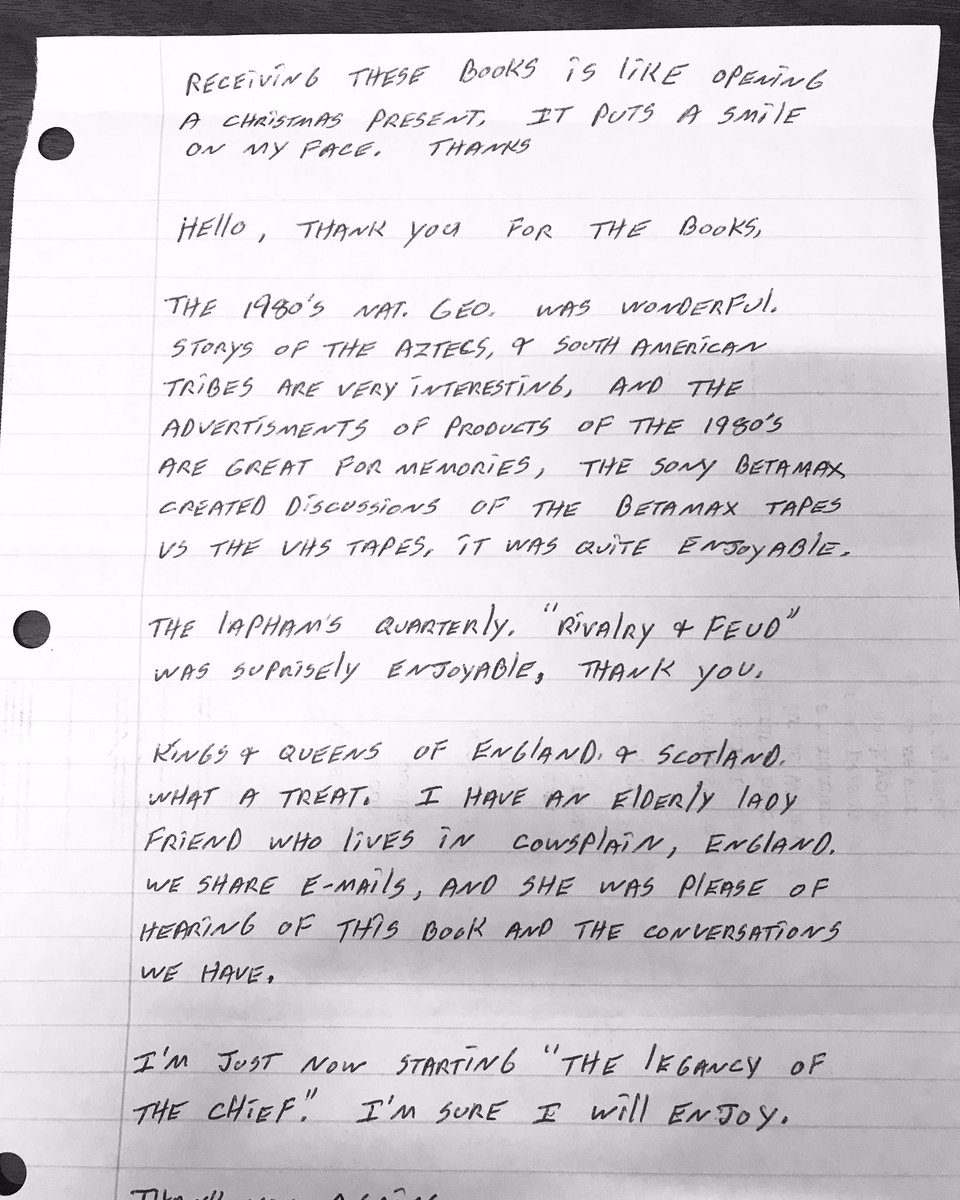 RECEIVING THESE BOOKS IS LIKE OPENING
A CHRISTMAS PRESENT. IT PUTS A SMILE
ON MY FACE. THANKS
HELLO, THANK YOU FOR THE BOOKS,
THE 1980'S NAT. GEO. WAS WONDERFUL.
STORYS OF THE AZTECS, & SOUTH AMERICAN
TRIBES ARE VERY INTERESTING, AND THE
ADVERTISMENTS OF PRODUCTS OF THE 1980'S
ARE GREAT FOR MEMORIES, THE SONY BETAMAX
CREATED DISCUSSIONS OF THE BETAMAX TAPES
VS THE VHS TAPES, IT WAS QUITE ENJOYABLE.
THE LAPHAM'S QUARTERLY. "RIVALRY & FEUD"
WAS SUPRISELY ENJOYABLE, THANK YOU.
KINGS & QUEENS OF ENGLAND. & SCOTLAND.
WHAT A TREAT. I HAVE AN ELDERLY LADY
FRIEND WHO LIVES IN COWSPLAIN, ENGLAND.
WE SHARE E-MAILS, AND SHE WAS PLEASE OF
HEARING OF THIS BOOK AND THE CONVERSATIONS
WE HAVE.
I'M JUST NOW STARTING "THE LEGANCY OF
THE CHIEF." I'M SURE I WILL ENJOY.